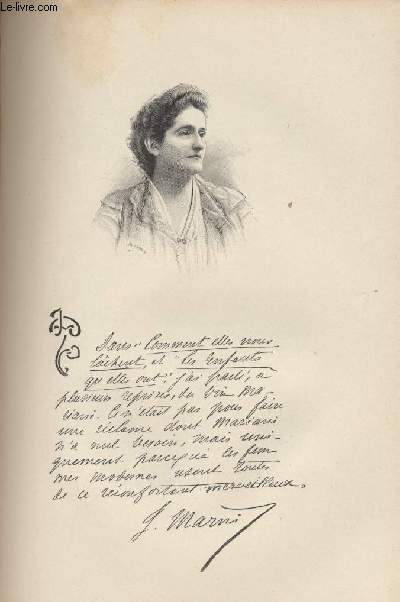 Le-livre.com
Dans "Comment elles nous
lâchent, et les Enfants
qu'elles ont" j'ai parlé, à
plusieurs reprises, du vin Ma-
riani. Ce n'était pas pour faire
une réclame dont Mariani
n'a nul besoin, mais uni-
quement parceque les fem-
mes modernes usent toutes
de ce réconfortant merveilleux.
J. Marni